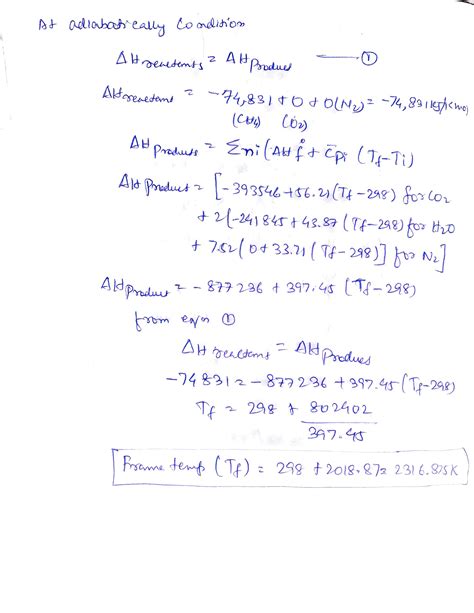 At adiabatically Condition
ΔHreactants = ΔHProduct ——— ①
ΔHreactant = -74,831 + 0 + 0(N2) = -74,831 KJ/Kmol
(CH4) (O2)
ΔHProducts = Σni(ΔHf° + C̄pi (Tf-Ti)
ΔHProduct = [-393546 + 56.21(Tf-298) for CO2
+ 2(-241845 + 43.87 (Tf-298) for H2O
+ 7.52(0 + 33.71(Tf-298)] for N2]
ΔHProduct = -877236 + 397.45 (Tf-298)
from eqn ①
ΔHreactants = ΔHProducts
-74831 = -877236 + 397.45(Tf-298)
Tf = 298 + 802402
397.45
Frame temp (Tf) = 298 + 2018.87 = 2316.875K